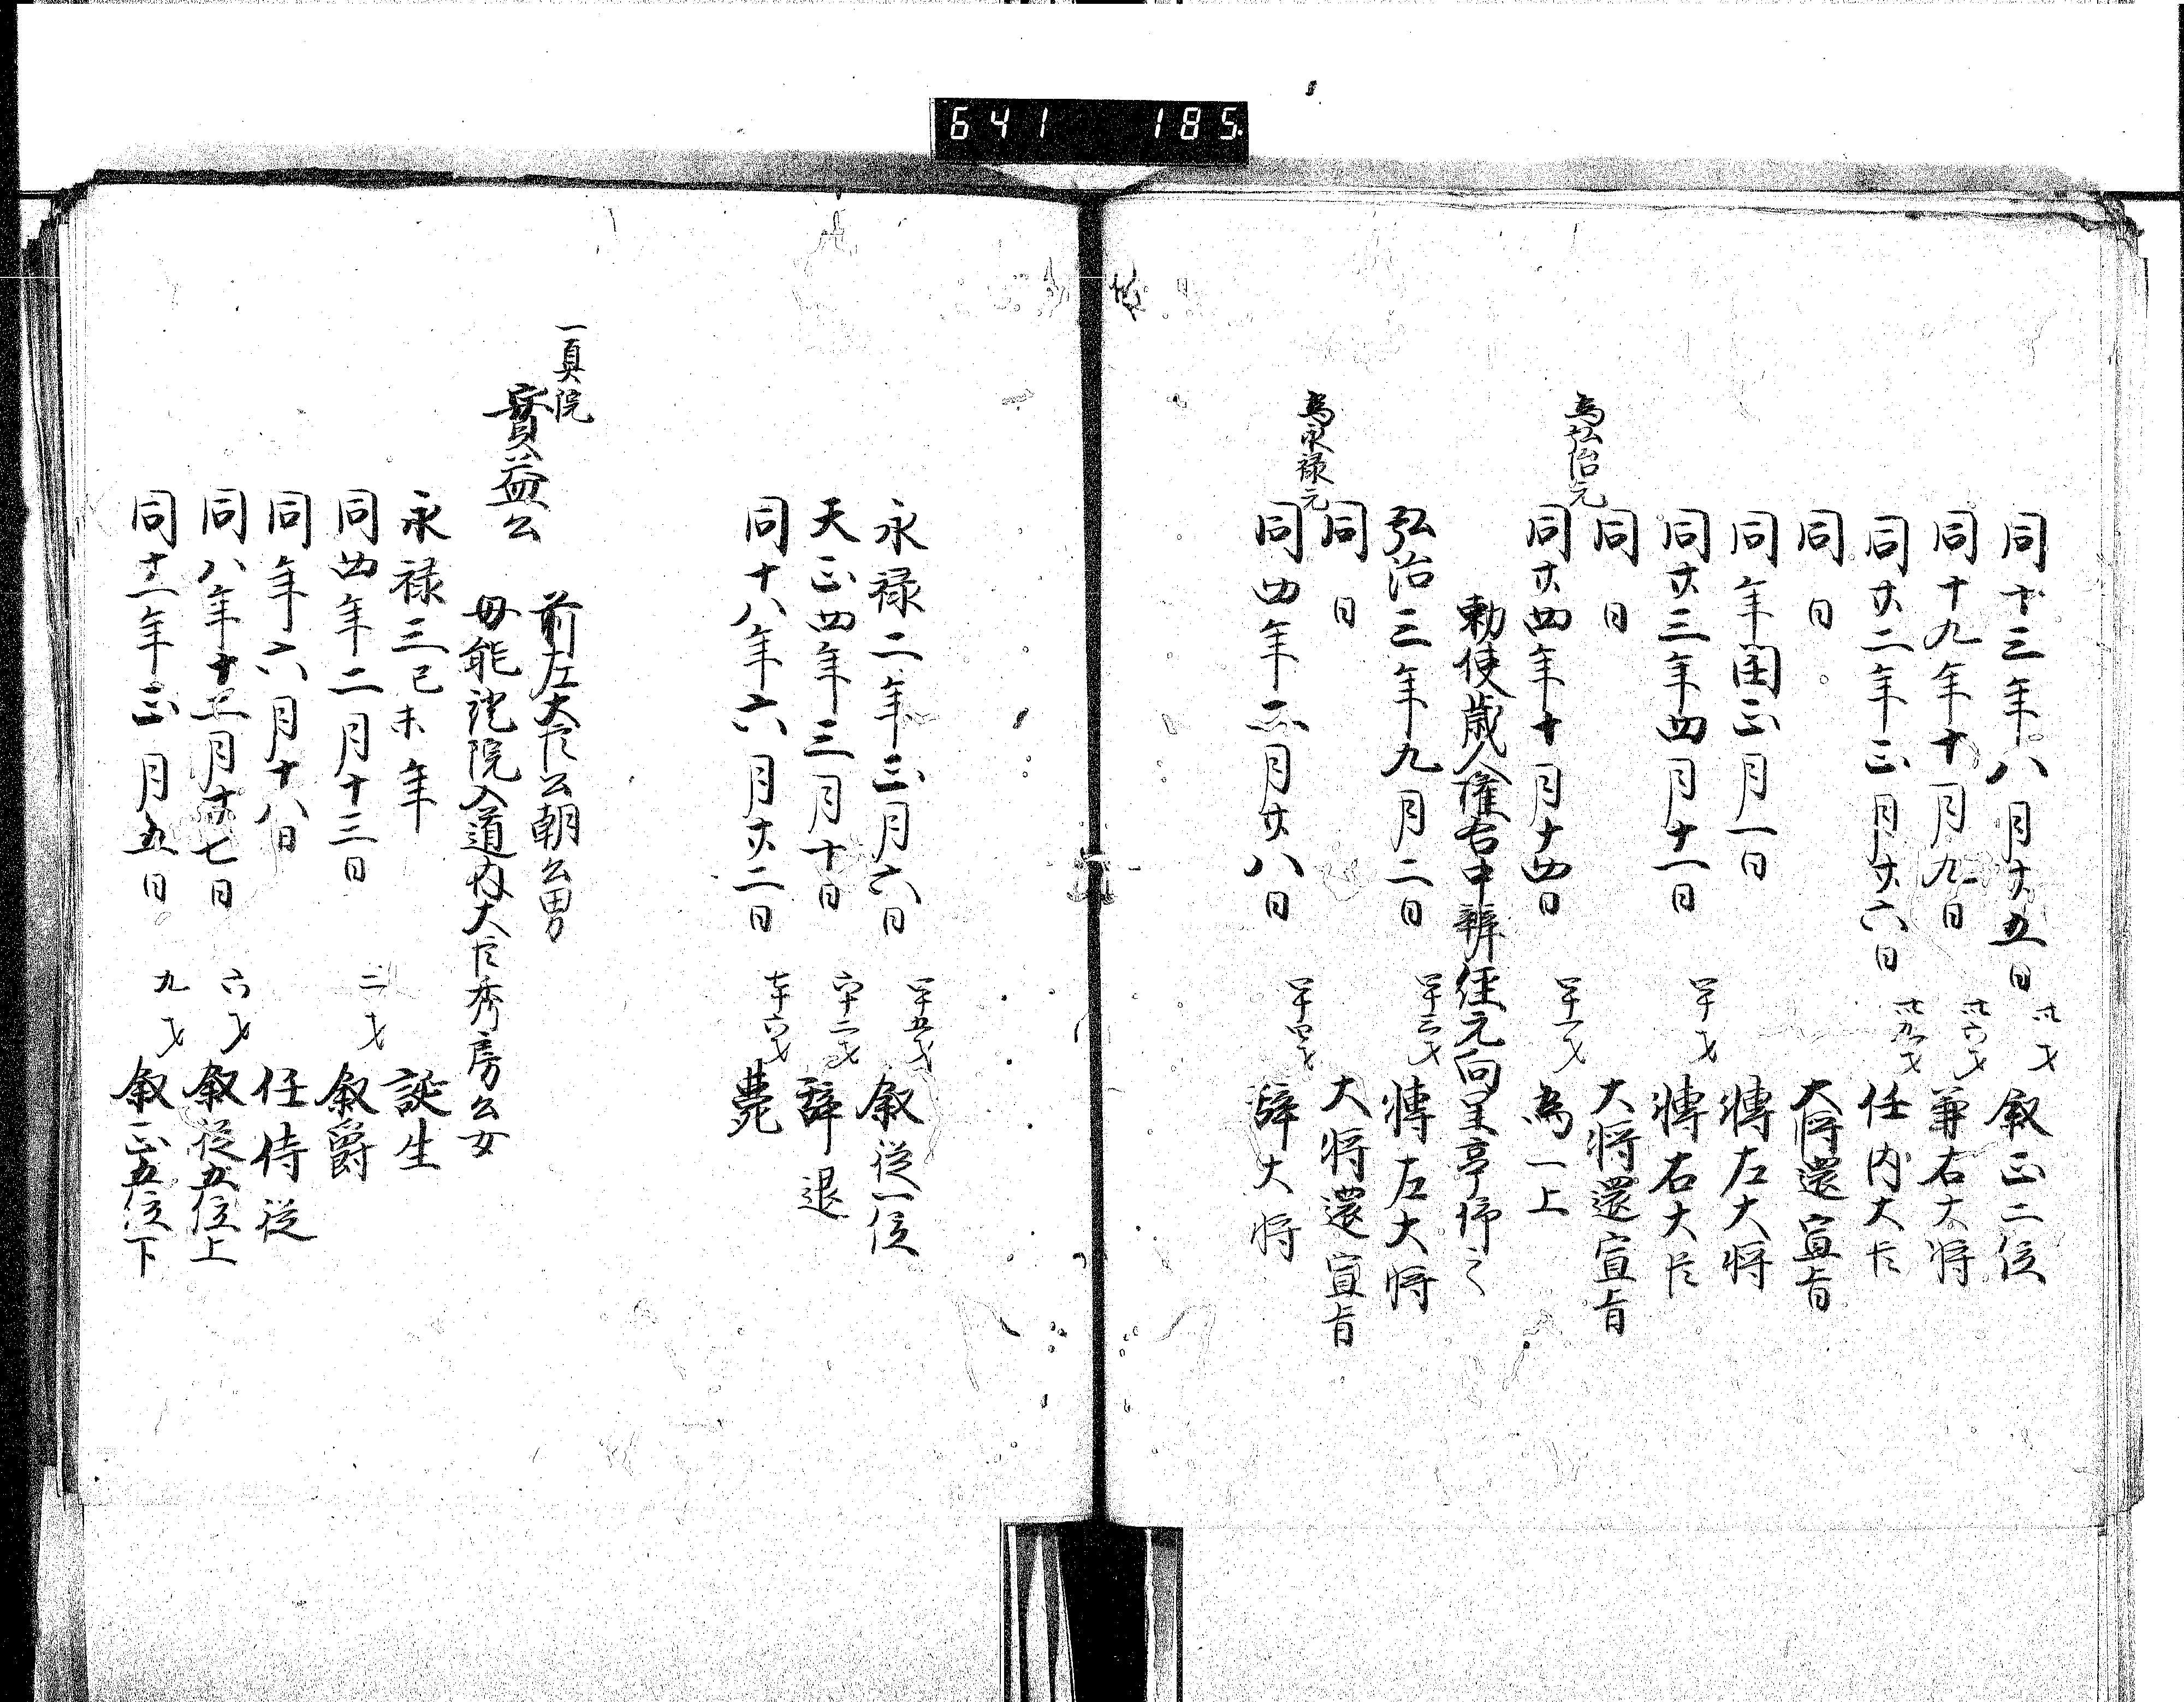 641 185
同十三年八月廿五日 卅才 叙正二位
同十九年十一月九日 卅六才 兼右大将
同廿二年三月廿六日 卅九才 任内大臣
同日 大将還宣旨
同年閏正月一日 轉左大将
同廿三年四月十一日 四十才 轉右大臣
同日 大将還宣旨
為弘治元
同廿四年十月十四日 四十一才 為一上
勅使蔵人権右中辨経元向里亭仰之
弘治三年九月二日 四十三才 轉左大将
同日 大将還宣旨
為永禄元
同四年二月廿八日 四十四才 辞大将
永禄二年三月六日 四十五才 叙従一位
天正四年三月十日 六十二才 辞退
同十八年六月廿二日 七十六才 薨
一真院
實益公
前左大臣公朝公男
母能証院入道内大臣秀房公女
永禄三己未年 誕生
同四年二月十三日 二才 叙爵
同年六月十八日 任侍従
同八年十二月廿七日 六才 叙従五位上
同十一年正月五日 九才 叙正五位下